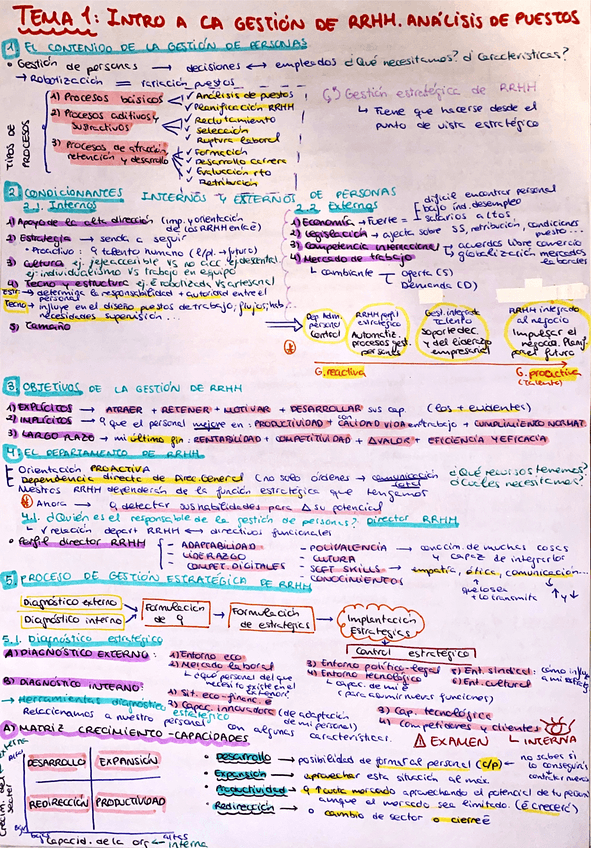 TEMA 1: INTRO A LA GESTIÓN DE RRHH. ANÁLISIS DE PUESTOS
1) EL CONTENIDO DE LA GESTIÓN DE PERSONAS
• Gestión de personas → decisiones ↔ empleados ¿Qué necesitamos? ¿Características?
→ Robotización = variación puestos
TIPOS DE PROCESOS
1) Procesos básicos
2) Procesos aditivos y sustractivos
3) Procesos de atracción, retención y desarrollo
✓ Análisis de puestos
✓ Planificación RRHH
✓ Reclutamiento
Selección
✓ Ruptura laboral
Formación
Desarrollo carrera
✓ Evaluación rto
Retribución
Gestión estratégica de RRHH
↳ Tiene que hacerse desde el
punto de vista estratégico
2. CONDICIONANTES INTERNOS Y EXTERNOS DE PERSONAS
2.1. Internos
1) Apoyo de la alta dirección (imp. y orientación
de los RRHH en la é)
2) Estrategia → senda a seguir
• Proactivo: q talento humano (l/pl. → futuro)
3) Cultura ej. jefe accesible VS no acc.
ej: individualismo VS trabajo en equipo
4) Tecno y estructura ej: é robotizada VS artesanal
Estr → determina la responsabilidad + autoridad entre el
personal
Tecno → influye en el diseño puestos de trabajo, flujos,
necesidades supervisión...
5) Tamaño
2.2. Externos
1) Economía → Fuerte =
difícil encontrar personal
bajo ind. desempleo
salarios altos
2) Legislación → afecta sobre SS, retribución, condiciones
puesto...
3) Competencia internacional → acuerdos libre comercio
→ globalización mercados
laborales
4) Mercado de trabajo
↳ cambiante
Oferta (S)
Demanda (D)
Dep. Adm. personal
Control
RRHH perfil estratégico
Automatiz. procesos gest. personas
Gest. integrada Talento
Soporte dec. y del liderazgo empresarial
RRHH integrado al negocio
Impulsar el negocio. Planif. por el futuro
G. reactiva
G. proactiva
(Talento)
3. OBJETIVOS DE LA GESTIÓN DE RRHH
1) EXPLÍCITOS → ATRAER + RETENER + MOTIVAR + DESARROLLAR sus cap. (los + evidentes)
2) IMPLÍCITOS → q que el personal mejore en: PRODUCTIVIDAD + CALIDAD VIDA en trabajo + CUMPLIMIENTO NORMAT.
3) LARGO PLAZO → mi último fin: RENTABILIDAD + COMPETITIVIDAD + ΔVALOR + EFICIENCIA Y EFICACIA
4. EL DEPARTAMENTO DE RRHH
Orientación PROACTIVA
Dependencia directa de Direc. General (no solo órdenes → comunicación total
Nuestros RRHH dependerán de la función estratégica que tengamos
¿Qué recursos tenemos?
¿Cuáles necesitamos?
Ahora → q detectar sus habilidades para Δ su potencial
4.1. ¿Quién es el responsable de la gestión de personas? Director RRHH
↳ ✓ relación depart RRHH y directivos funcionales
• Perfil director RRHH
- ADAPTABILIDAD
- LIDERAZGO
- COMPET. DIGITALES
- POLIVALENCIA → noción de muchas cosas
- CULTURA y capaz de integrarlas
- SOFT SKILLS → empatía, ética, comunicación...
- CONOCIMIENTOS
5. PROCESO DE GESTIÓN ESTRATÉGICA DE RRHH
Diagnóstico externo
Diagnóstico interno
Formulación de q
Formulación de estrategias
Implantación Estrategias
Control estratégico
5.1. Diagnóstico estratégico
A) DIAGNÓSTICO EXTERNO:
1) Entorno eco
2) Mercado laboral
↳ ¿qué personal del que
necesito existe en el
exterior?
3) Entorno político-legal
4) Entorno tecnológico
↳ cap. de mi é
(para asumir nuevas funciones)
5) Ent. sindical.
6) Ent. cultural
B) DIAGNÓSTICO INTERNO:
1) Sit. eco-financ. é
2) Capac. innovadora (de adaptación
de mi personal)
3) Cap. tecnológica
4) Competidores y clientes
→ Herramientas diagnóstico estratégico
Relacionamos a nuestro personal con algunas características.
⚠ EXAMEN
↳ INTERNA
A) MATRIZ CRECIMIENTO-CAPACIDADES
DESARROLLO
EXPANSIÓN
REDIRECCIÓN
PRODUCTIVIDAD
Capacid. de la org. → interna
• Desarrollo → posibilidad de formar al personal (c/p)
• Expansión → aprovechar esta situación al máx.
• Productividad → q ↑ cuota mercado aprovechando el potencial de tu personal
aunque el mercado sea limitado. (é crecerá)
• Redirección → o cambio de sector o cierre é